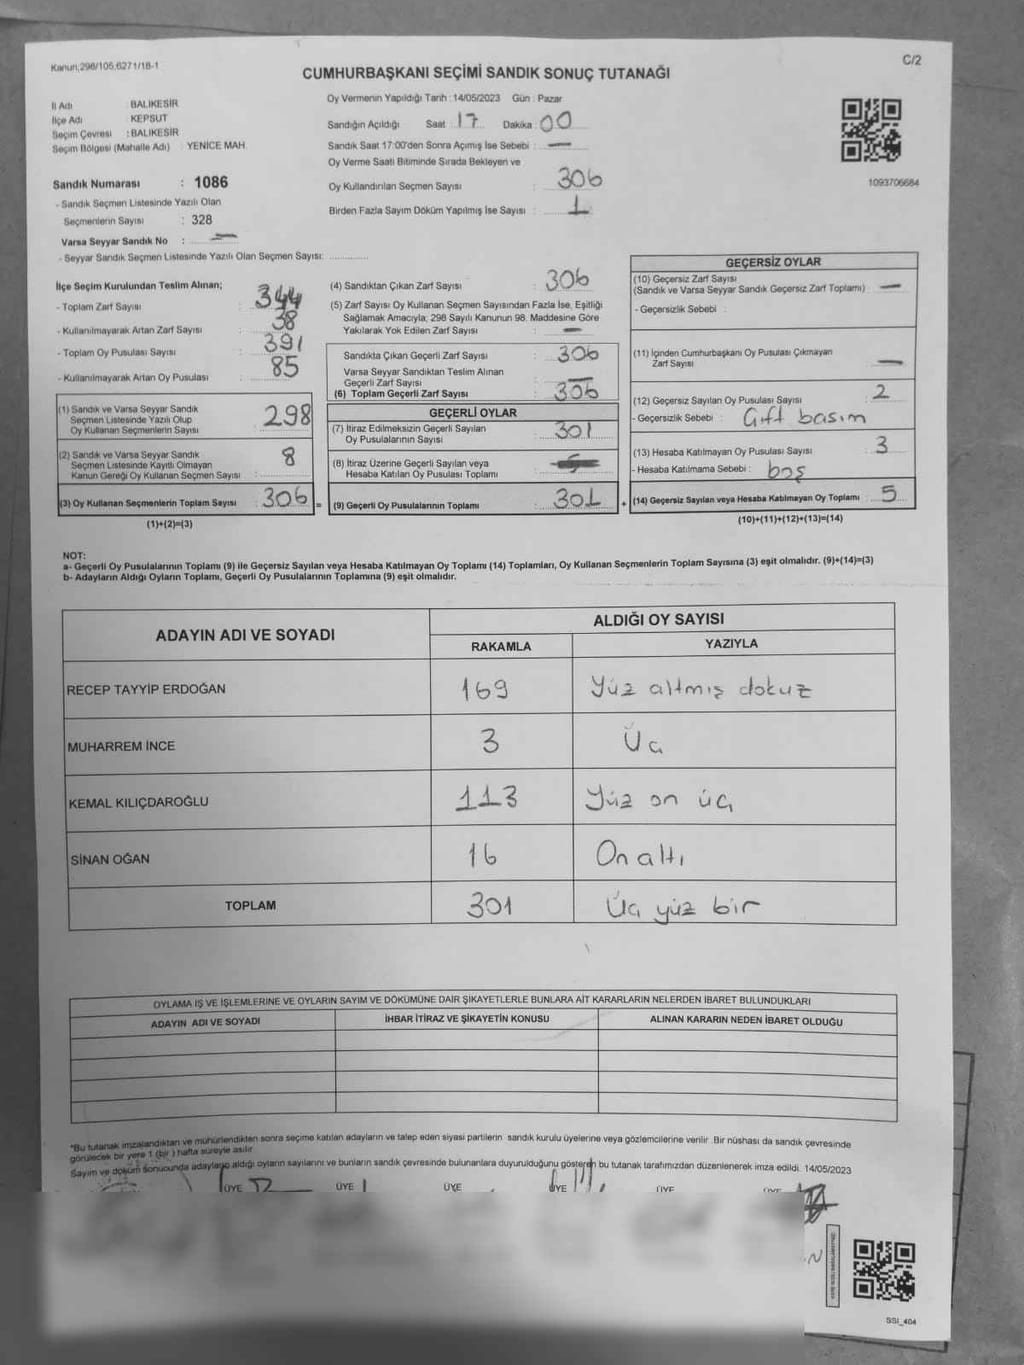 Kanun,298/106,6271/18-1
C/2
CUMHURBAŞKANI SEÇİMİ SANDIK SONUÇ TUTANAĞI
İl Adı : BALIKESİR
İlçe Adı KEPSUT
Seçim Çevresi : BALIKESİR
Seçim Bölgesi (Mahalle Adı) : YENICE MAH.
Sandık Numarası : 1086
- Sandık Seçmen Listesinde Yazılı Olan
Seçmenlerin Sayısı : 328
Varsa Seyyar Sandık No : —
- Seyyar Sandık Seçmen Listesinde Yazılı Olan Seçmen Sayısı: ..............
Oy Vermenin Yapıldığı Tarih : 14/05/2023 Gün : Pazar
Sandığın Açıldığı Saat : 17 Dakika : 00
Sandık Saat 17:00'den Sonra Açımış İse Sebebi : —
Oy Verme Saati Bitiminde Sırada Bekleyen ve
Oy Kullandırılan Seçmen Sayısı : 306
Birden Fazla Sayım Döküm Yapılmış İse Sayısı : 1
1093706684
İlçe Seçim Kurulundan Teslim Alınan;
- Toplam Zarf Sayısı : 344
- Kullanılmayarak Artan Zarf Sayısı : 38
- Toplam Oy Pusulası Sayısı : 391
- Kullanılmayarak Artan Oy Pusulası : 85
(1) Sandık ve Varsa Seyyar Sandık
Seçmen Listesinde Yazılı Olup
Oy Kullanan Seçmenlerin Sayısı : 298
(2) Sandık ve Varsa Seyyar Sandık
Seçmen Listesinde Kayıtlı Olmayan
Kanun Gereği Oy Kullanan Seçmen Sayısı : 8
(3) Oy Kullanan Seçmenlerin Toplam Sayısı : 306 =
(1)+(2)=(3)
(4) Sandıktan Çıkan Zarf Sayısı : 306
(5) Zarf Sayısı Oy Kullanan Seçmen Sayısından Fazla İse, Eşitliği
Sağlamak Amacıyla; 298 Sayılı Kanunun 98. Maddesine Göre
Yakılarak Yok Edilen Zarf Sayısı : —
Sandıkta Çıkan Geçerli Zarf Sayısı : 306
Varsa Seyyar Sandıktan Teslim Alınan
Geçerli Zarf Sayısı : —
(6) Toplam Geçerli Zarf Sayısı : 306
GEÇERLİ OYLAR
(7) İtiraz Edilmeksizin Geçerli Sayılan
Oy Pusulalarının Sayısı : 301
(8) İtiraz Üzerine Geçerli Sayılan veya
Hesaba Katılan Oy Pusulası Toplamı :
(9) Geçerli Oy Pusulalarının Toplamı : 301 +
GEÇERSİZ OYLAR
(10) Geçersiz Zarf Sayısı
(Sandık ve Varsa Seyyar Sandık Geçersiz Zarf Toplamı) : —
- Geçersizlik Sebebi :
(11) İçinden Cumhurbaşkanı Oy Pusulası Çıkmayan
Zarf Sayısı : —
(12) Geçersiz Sayılan Oy Pusulası Sayısı : 2
- Geçersizlik Sebebi : Çift basım
(13) Hesaba Katılmayan Oy Pusulası Sayısı : 3
- Hesaba Katılmama Sebebi : boş
(14) Geçersiz Sayılan veya Hesaba Katılmayan Oy Toplamı : 5
(10)+(11)+(12)+(13)=(14)
NOT:
a- Geçerli Oy Pusulalarının Toplamı (9) ile Geçersiz Sayılan veya Hesaba Katılmayan Oy Toplamı (14) Toplamları, Oy Kullanan Seçmenlerin Toplam Sayısına (3) eşit olmalıdır. (9)+(14)=(3)
b- Adayların Aldığı Oyların Toplamı, Geçerli Oy Pusulalarının Toplamına (9) eşit olmalıdır.
ADAYIN ADI VE SOYADI ALDIĞI OY SAYISI
RAKAMLA YAZIYLA
RECEP TAYYİP ERDOĞAN 169 Yüz altmış dokuz
MUHARREM İNCE 3 Üç
KEMAL KILIÇDAROĞLU 113 Yüz on üç
SİNAN OĞAN 16 On altı
TOPLAM 301 Üç yüz bir
OYLAMA İŞ VE İŞLEMLERİNE VE OYLARIN SAYIM VE DÖKÜMÜNE DAİR ŞİKAYETLERLE BUNLARA AİT KARARLARIN NELERDEN İBARET BULUNDUKLARI
ADAYIN ADI VE SOYADI İHBAR İTİRAZ VE ŞİKAYETİN KONUSU ALINAN KARARIN NEDEN İBARET OLDUĞU
*Bu tutanak imzalandıktan ve mühürlendikten sonra seçime katılan adayların ve talep eden siyasi partilerin sandık kurulu üyelerine veya gözlemcilerine verilir. Bir nüshası da sandık çevresinde
görülecek bir yere 1 (bir) hafta süreyle asılır.
Sayım ve döküm sonucunda adayların aldığı oyların sayılarını ve bunların sandık çevresinde bulunanlara duyurulduğunu gösteren bu tutanak tarafımızdan düzenlenerek imza edildi. 14/05/2023
ÜYE ÜYE ÜYE ÜYE ÜYE
SSI_404